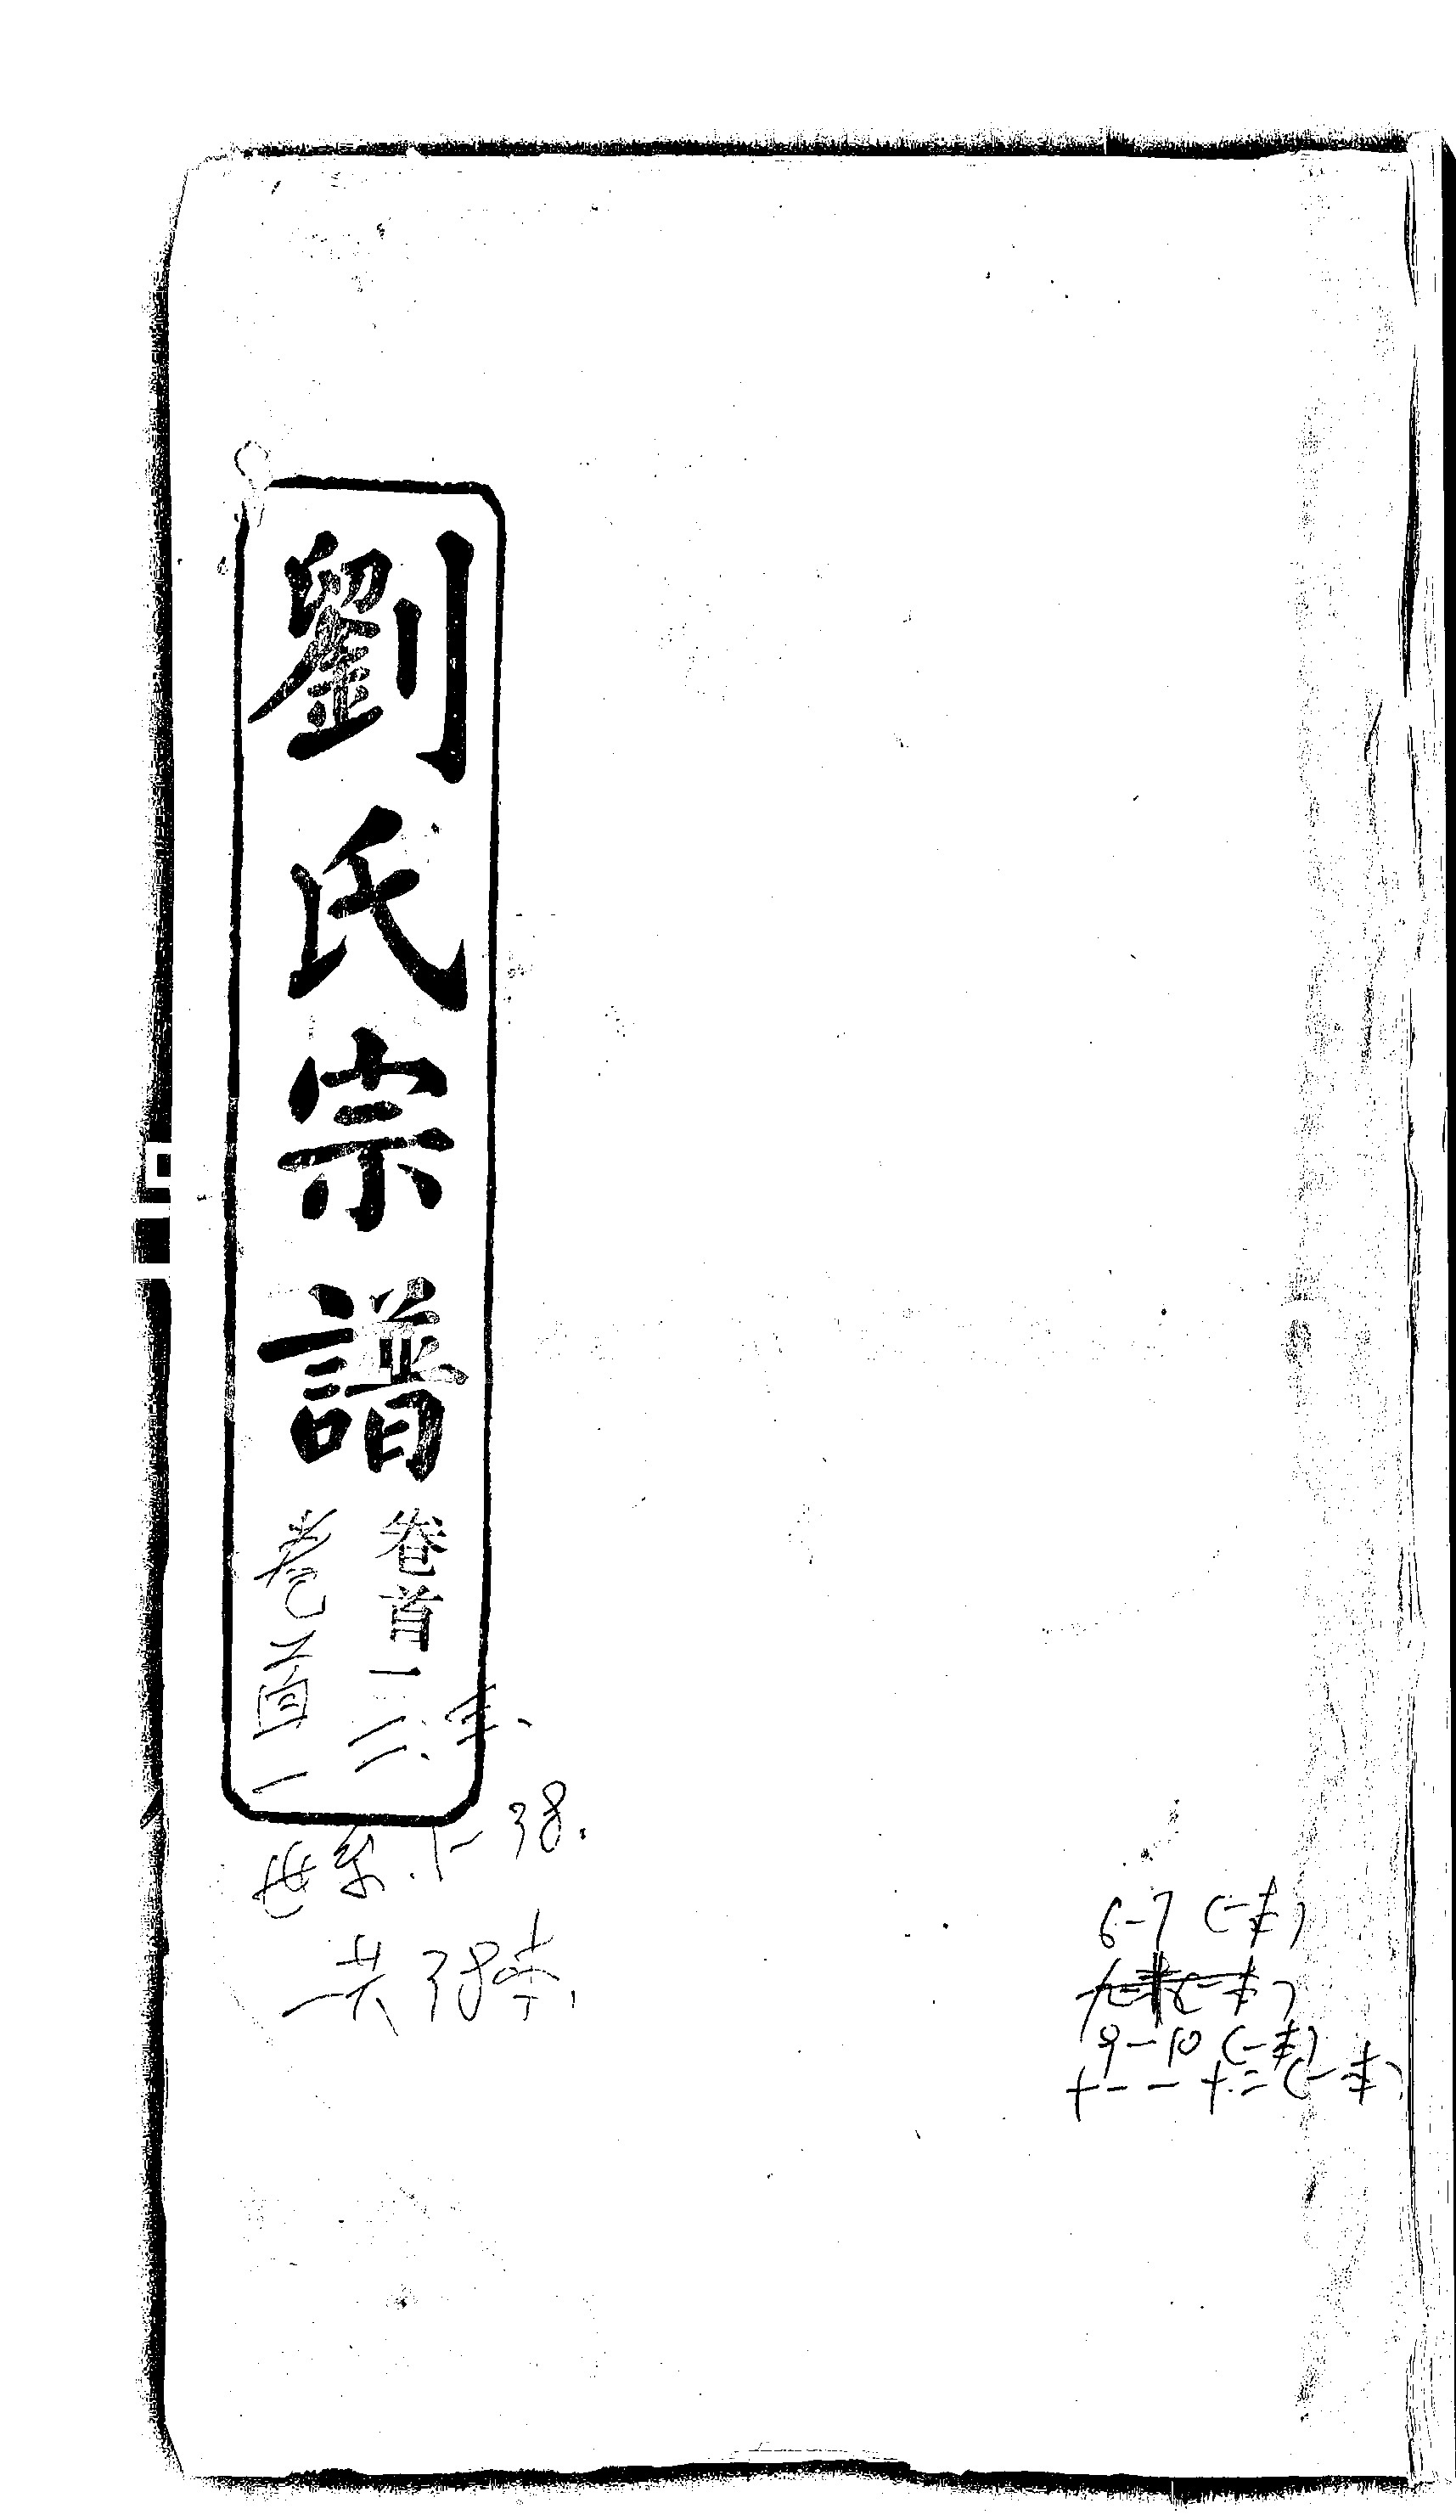 劉氏宗譜
卷首一
二、本、
卷首一
世系.1-38.
一共38本.
6-7 (一本)
9-10 (一本)
十一-十二(一本)